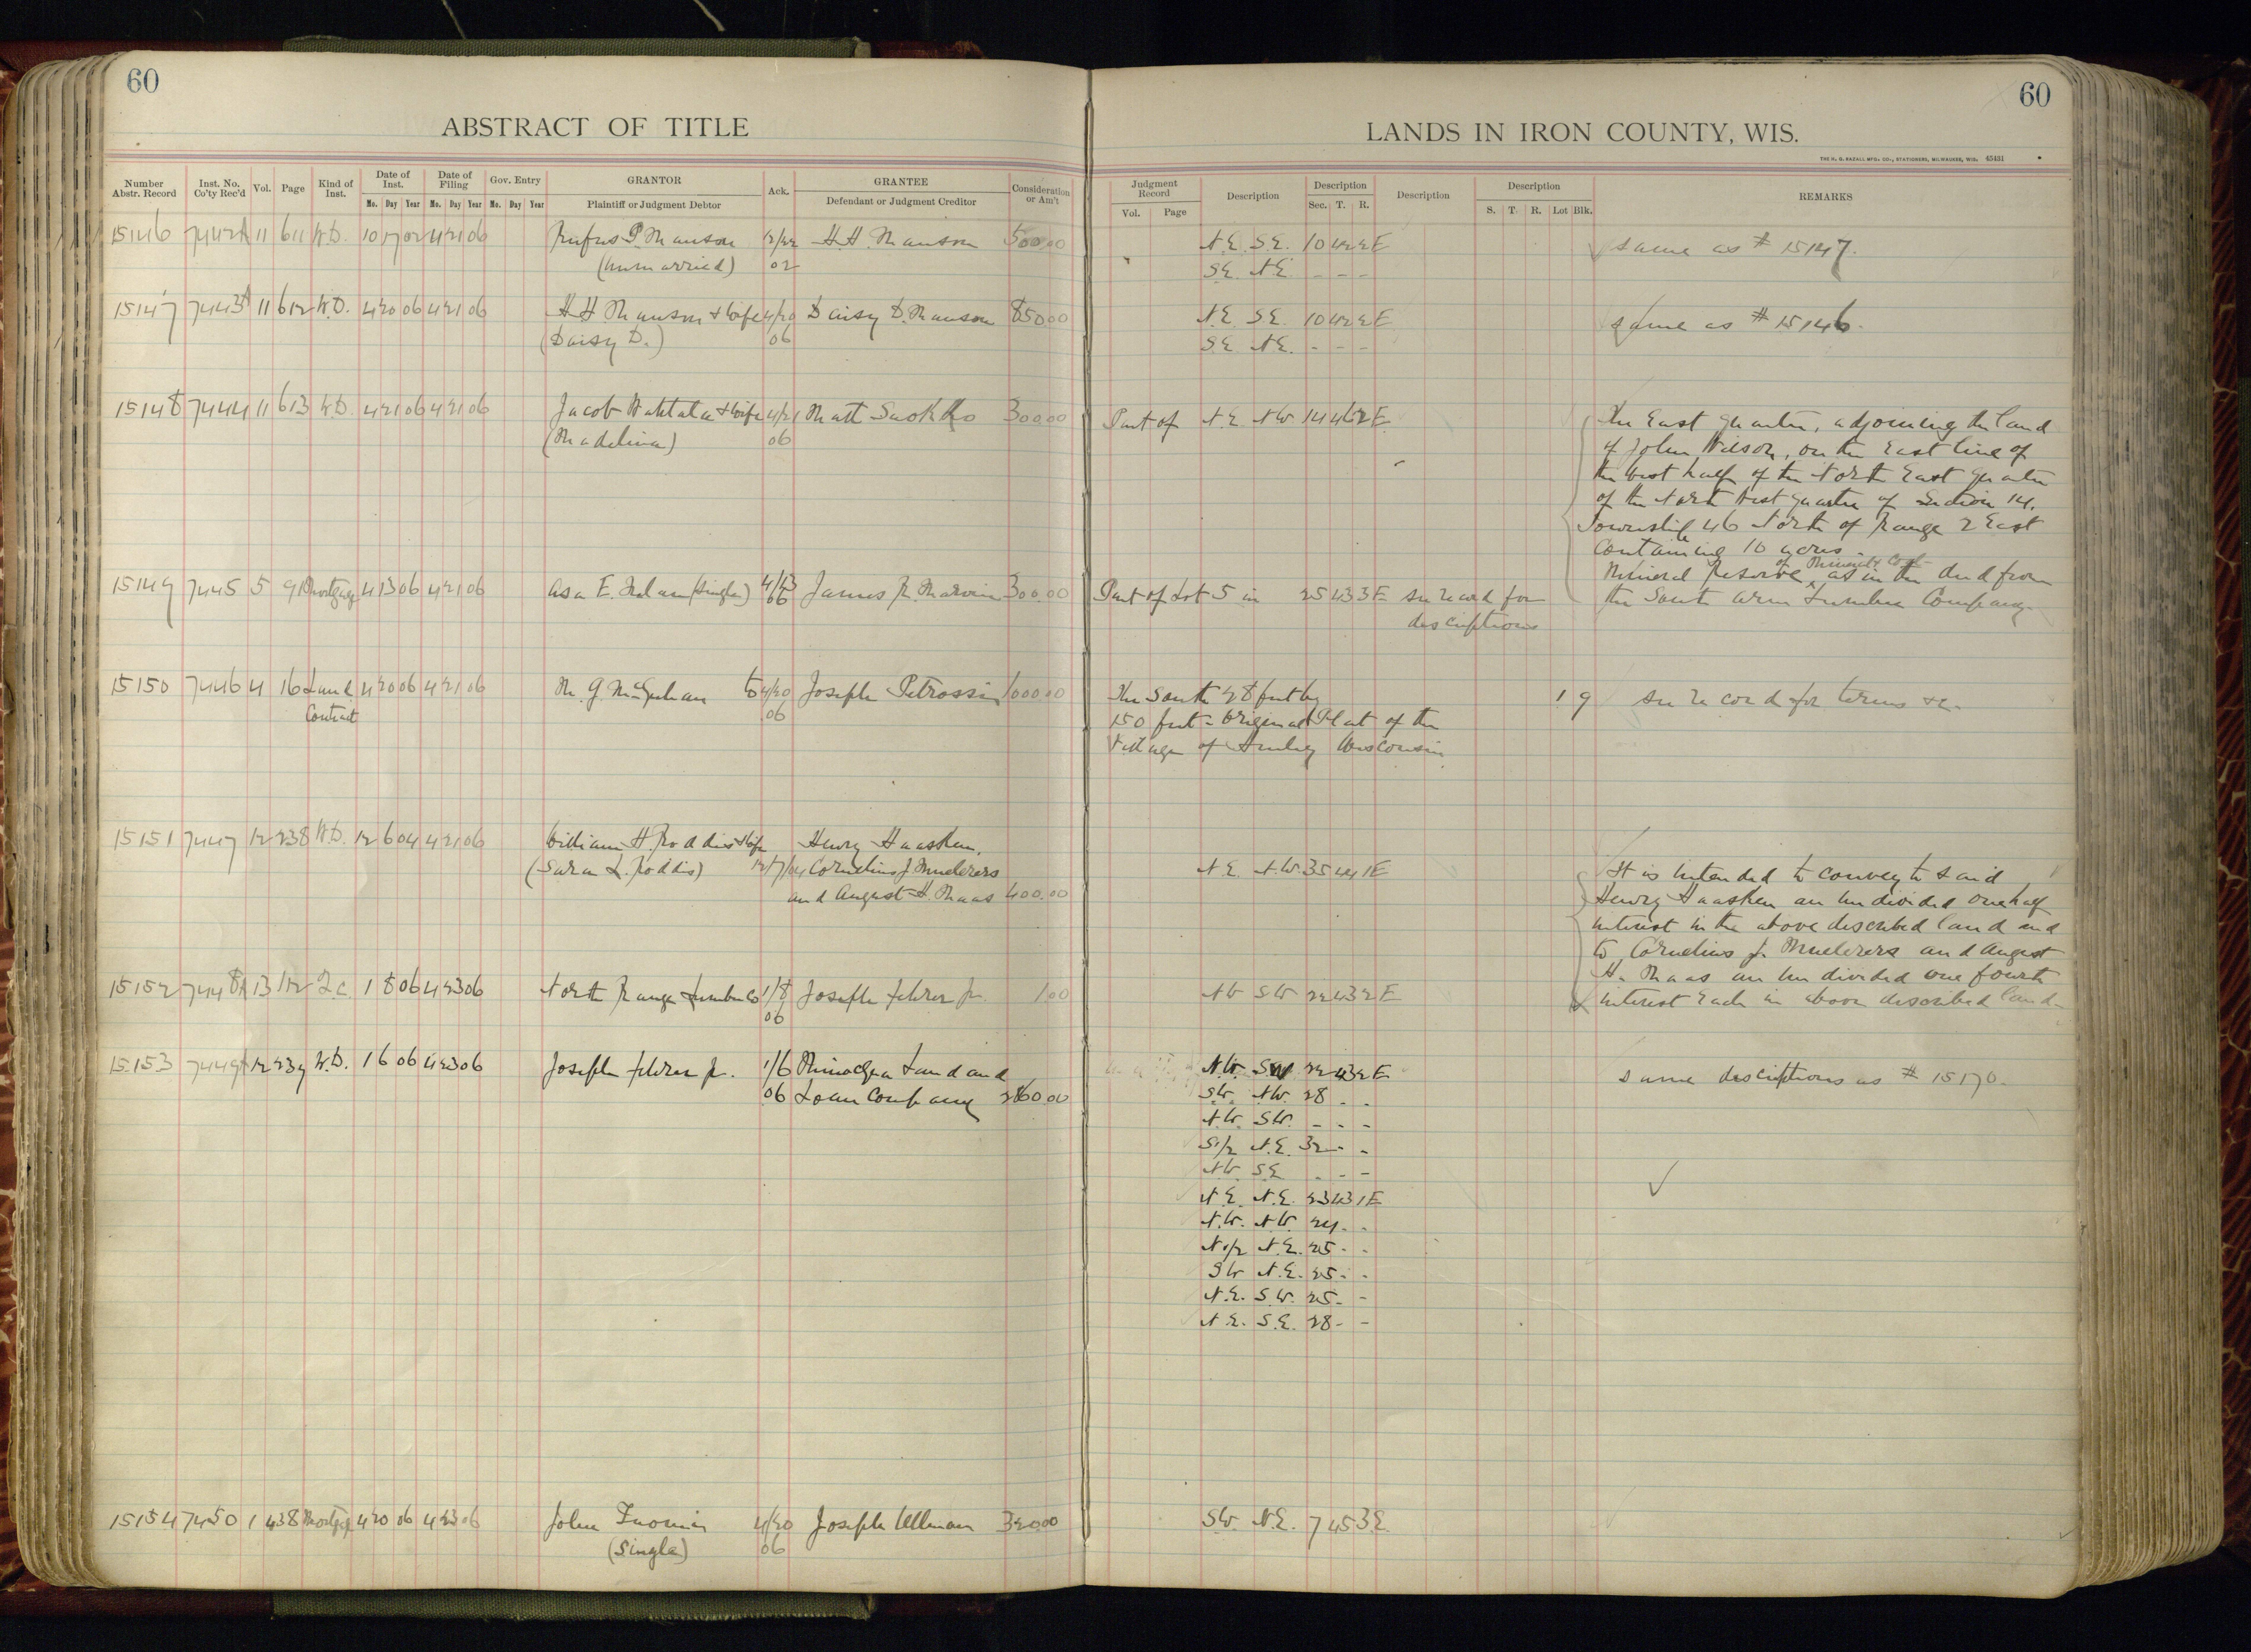 60
ABSTRACT OF TITLE
Number Abstr. Record
Inst. No. Co'ty Rec'd
Vol.
Page
Kind of Inst.
Date of Inst.
Mo. Day Year
Date of Filing
Mo. Day Year
Gov. Entry
Mo. Day Year
GRANTOR
Plaintiff or Judgment Debtor
Ack.
GRANTEE
Defendant or Judgment Creditor
Consideration or Am't
15146 7442 11 611 W.D. 10 17 02 4 21 06 Rufus P. Manson 12/22 H.H. Manson 500.00
(unmarried) 02
15147 7443 11 612 W.D. 4 20 06 4 21 06 H H Manson & wife 4/20 Daisy D. Manson 850.00
(Daisy D.) 06
15148 7444 11 613 W.D. 4 21 06 4 21 06 Jacob Wahtala & wife 4/21 Matt Saokko 300.00
(Madelina) 06
15149 7445 5 91 Mortgage 4 13 06 4 21 06 Asa E. (single) 4/13 James R. Marvin 300.00
06
15150 7446 4 16 Land 4 20 06 4 21 06 M. G. to 4/20 Joseph Petrossin 1000.00
Contract 06
15151 7447 12 238 W.D. 12 6 04 4 21 06 William H. Roddis & wife Henry Haasken,
(Sara L. Roddis) 12/7/04 Cornelius J. Muelerers
and August H. Maas 400.00
15152 7448 13 112 Q.C. 1 8 06 4 23 06 North Range Lumber Co 1/8 Joseph Fehrer Jr. 1.00
06
15153 7449 12 239 W.D. 1 6 06 4 23 06 Joseph Fehrer Jr. 1/6 Minocqua Land and
06 Loan Company 2860.00
15154 7450 1 438 Mortgage 4 20 06 4 23 06 John 4/20 Joseph Ullman 320.00
(Single) 06
60
LANDS IN IRON COUNTY, WIS.
THE H. G. RAZALL MFG. CO., STATIONERS, MILWAUKEE, WIS. 45431
Judgment Record
Vol. Page
Description
Description
Sec. T. R.
Description
Description
S. T. R. Lot Blk.
REMARKS
N.E. S.E. 10 42 2E same as # 15147.
S.E. N.E. - - -
N.E. S.E. 10 42 2E same as # 15146.
S.E. N.E. - - -
Part of N.E. N.W. 14 46 2E The East quarter, adjoining the land
of John Wilson, on the East line of
the West half of the North East quarter
of the North West quarter of Section 14.
Township 46 North of Range 2 East
Containing 10 acres.
Mineral Reserve as in the deed from
Part of Lot 5 in 25 43 3E See record for the South Arm Lumber Company.
descriptions
The South 28 feet by 1 9 See record for terms &c.
150 feet - Original Plat of the
Village of Wisconsin
N.E. N.W. 35 44 1E It is intended to convey to said
Henry Haasken an undivided one half
interest in the above described land and
to Cornelius J. Muelerers and August
H. Maas an undivided one fourth
NW SW 22 43 2E interest Each in above described land.
N.W. SW 22 43 2E same descriptions as # 15170.
S.W. N.W. 28 - -
N.W. S.W. - - -
S1/2 N.E. 32 - -
NW. S.E. - - -
N.E. N.E. 23 43 1E
N.W. N.W. 24 - -
N1/2 N.E. 25 - -
SW N.E. 25 - -
N.E. S.W. 25 - -
N.E. S.E. 28 - -
S.W. N.E. 7 45 3E.